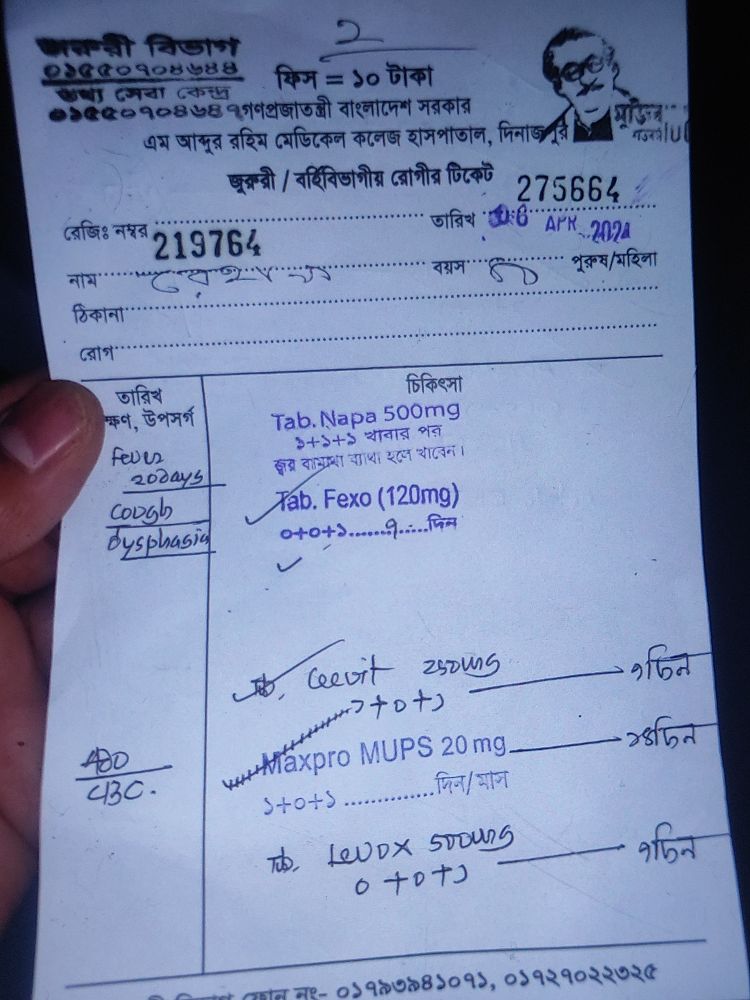 জরুরী বিভাগ
০১৫৫০৭০৪৬৪৪
তথ্য সেবা কেন্দ্র
০১৫৫০৭০৪৬৪৭
২
ফিস = ১০ টাকা
গণপ্রজাতন্ত্রী বাংলাদেশ সরকার
এম আব্দুর রহিম মেডিকেল কলেজ হাসপাতাল, দিনাজপুর
মুজিব
জরুরী / বর্হিবিভাগীয় রোগীর টিকেট
275664
রেজিঃ নম্বর 219764 তারিখ 06 APR 2021
নাম বয়স পুরুষ/মহিলা
ঠিকানা
রোগ
তারিখ
ক্ষণ, উপসর্গ
চিকিৎসা
Fever
20days
Cough
Dysphasia
Tab. Napa 500mg
১+১+১ খাবার পর
জ্বর বা মাথা ব্যাথা হলে খাবেন।
Tab. Fexo (120mg)
০+০+১........৭.....দিন
Tab. Ceevit 250mg ৭দিন
১+০+১
Maxpro MUPS 20 mg ১৪দিন
১+০+১ ..............দিন/মাস
CBC.
Tab. Levox 500mg ৭দিন
0+0+১
ফোন নং- ০১৭৯৩৬৪১০৭১, ০১৭২৭০২২৩২৫